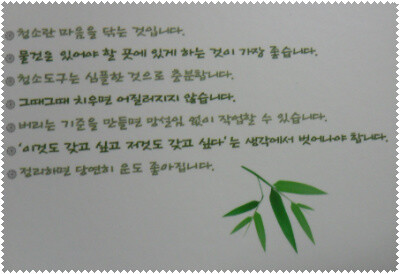 청소란 마음을 닦는 것입니다.
물건은 있어야 할 곳에 있게 하는 것이 가장 좋습니다.
청소도구는 심플한 것으로 충분합니다.
그때그때 치우면 어질러지지 않습니다.
버리는 기준을 만들면 망설임 없이 작업할 수 있습니다.
'이것도 갖고 싶고 저것도 갖고 싶다'는 생각에서 벗어나야 합니다.
정리하면 당연히 운도 좋아집니다.